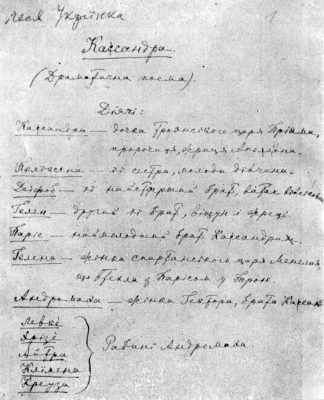 Леся Українка 1
Кассандра.
(Драматична поема)
Діячі:
Кассандра — дочка троянського царя Пріама,
пророчиця, жриця Аполлона.
Поліксена — її сестра, молода дівчина.
Деїфоб — її найстарший брат, ватаг
Гелен — другий її брат, віщун і жрець.
Паріс — наймолодший брат Кассандрин.
Гелена — жінка спартанського царя Менелая,
що втекла з Парісом у Трою.
Андромаха — жінка Гектора, брата
Левке
Хрізе
Аітра
Клімена
Креуза
Рабині Андромахи